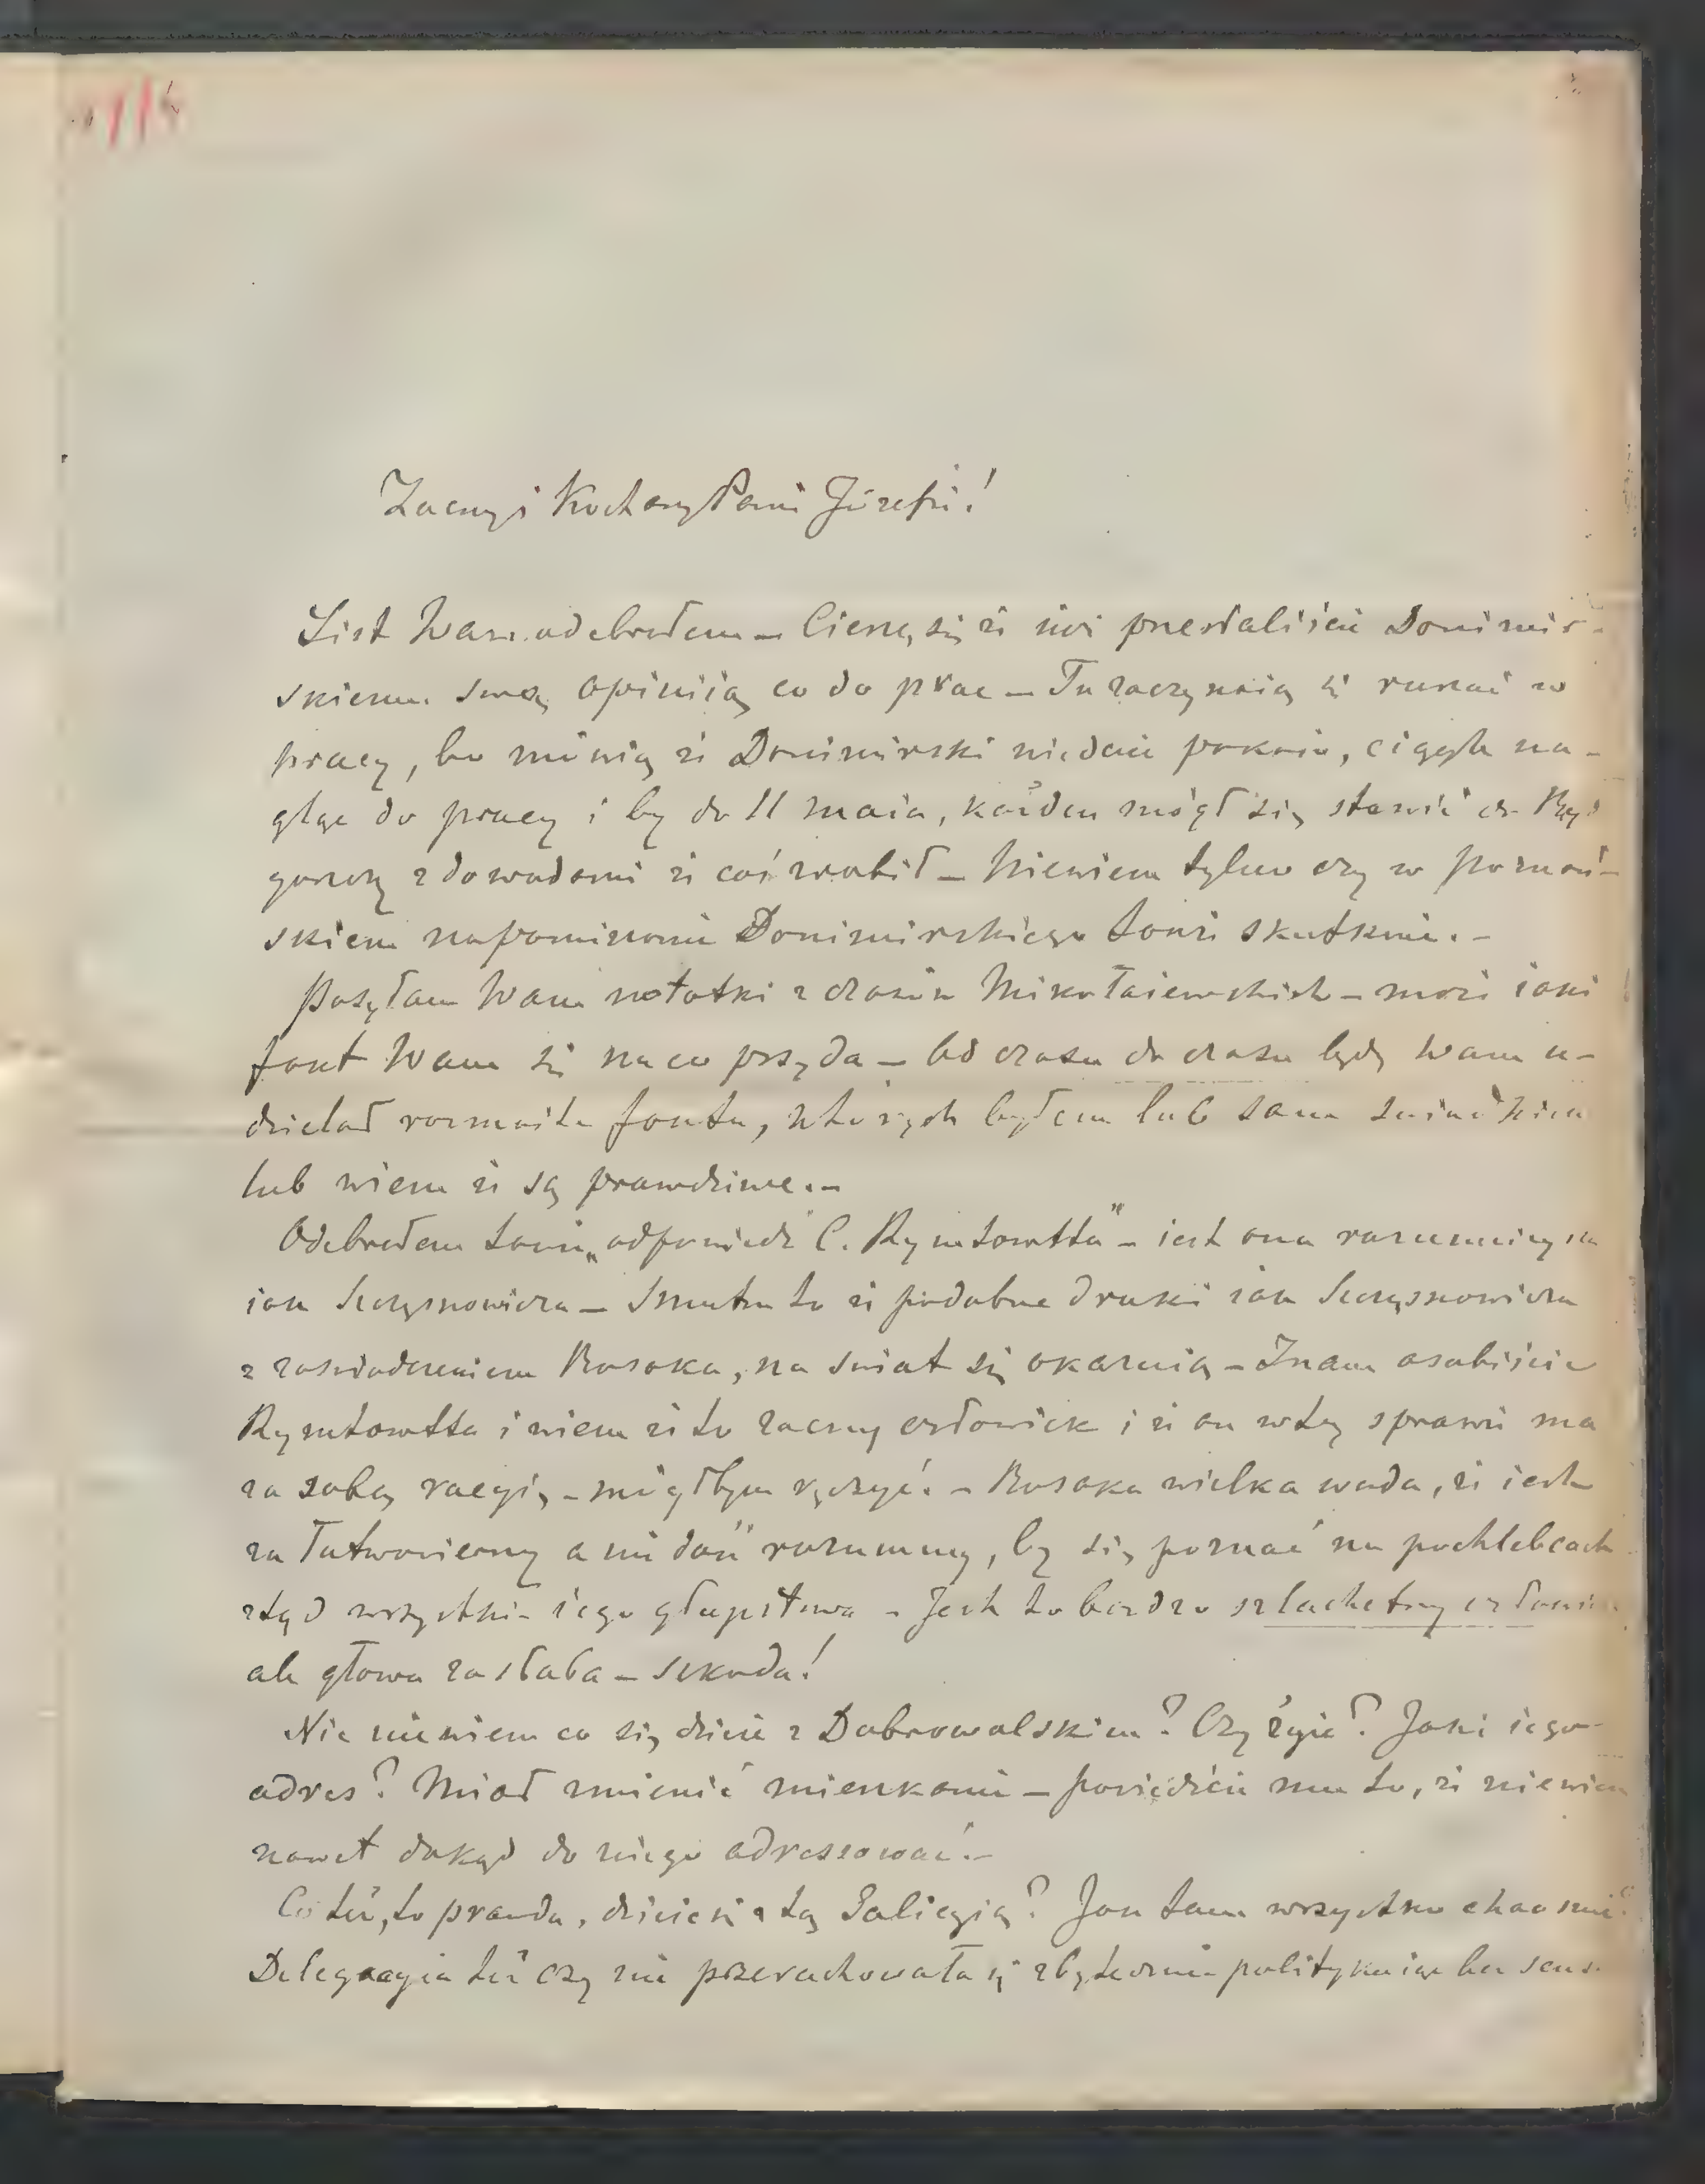 Zacny i Kochany Panie Józefie!
List Wasz odebrałem – Cieszę się że iuż przesłaliście Donimir-
skiemu swą opiniią co do prac – Tu zaczynaią się ruszać w
pracy, bo mówią że Donimirski niedaie pokoiu, ciągle na-
gląc do pracy i by do 11 maia, każden mógł się stawić do
z dowodami że coś zrobił – Niewiem tylko czy w Poznań-
skiem napominanie Donimirskiego toż skutkuie. –
Posyłam Wam notatki z czasów Mikołaiewskich – może iaki
fakt Wam się na co przyda – Od czasu do czasu będę Wam u-
dzielał rozmaite fakta, których byłem lub sam świadkiem
lub wiem że są prawdziwe. –
Odebrałem także „odpowiedź C. Rymtowtta" – iest ona rozumnieysza
iak Szczęsnowicza – Smutno to że podobne druki iak Szczęsnowicza
z zaświadczeniem Bosaka, na świat się okazuią – Znam osobiście
Rymtowtta i wiem że to zacny człowiek i że on w tey sprawie ma
za sobą racyię, – mógłbym ręczyć. – Bosaka wielka wada, że iest
za łatwowierny a nie dość rozumny, by się poznać na pochlebcach
stąd wszystkie iego głupstwa – Jest to bardzo szlachetny
ale głowa za słaba – szkoda!
Nic nie wiem co się dzieie z Dobrowolskim? Czy żyie? Jaki iego
adres? Miał zmienić mieszkanie – powiedzcie mu to, że niewiem
nawet dokąd do niego adressować. –
Co też, to prawda, dzieie się z tą Galicyią? Jak tam wszystko
Delegacyia też czy nie przerachowała się zbytecznie polityкuiąc bez sensu